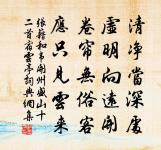 清净當深處
虛明向遠開
卷簾無俗客
應只見雲来
張籍和韋開州盛山十
二首宿雲亭詞典網集